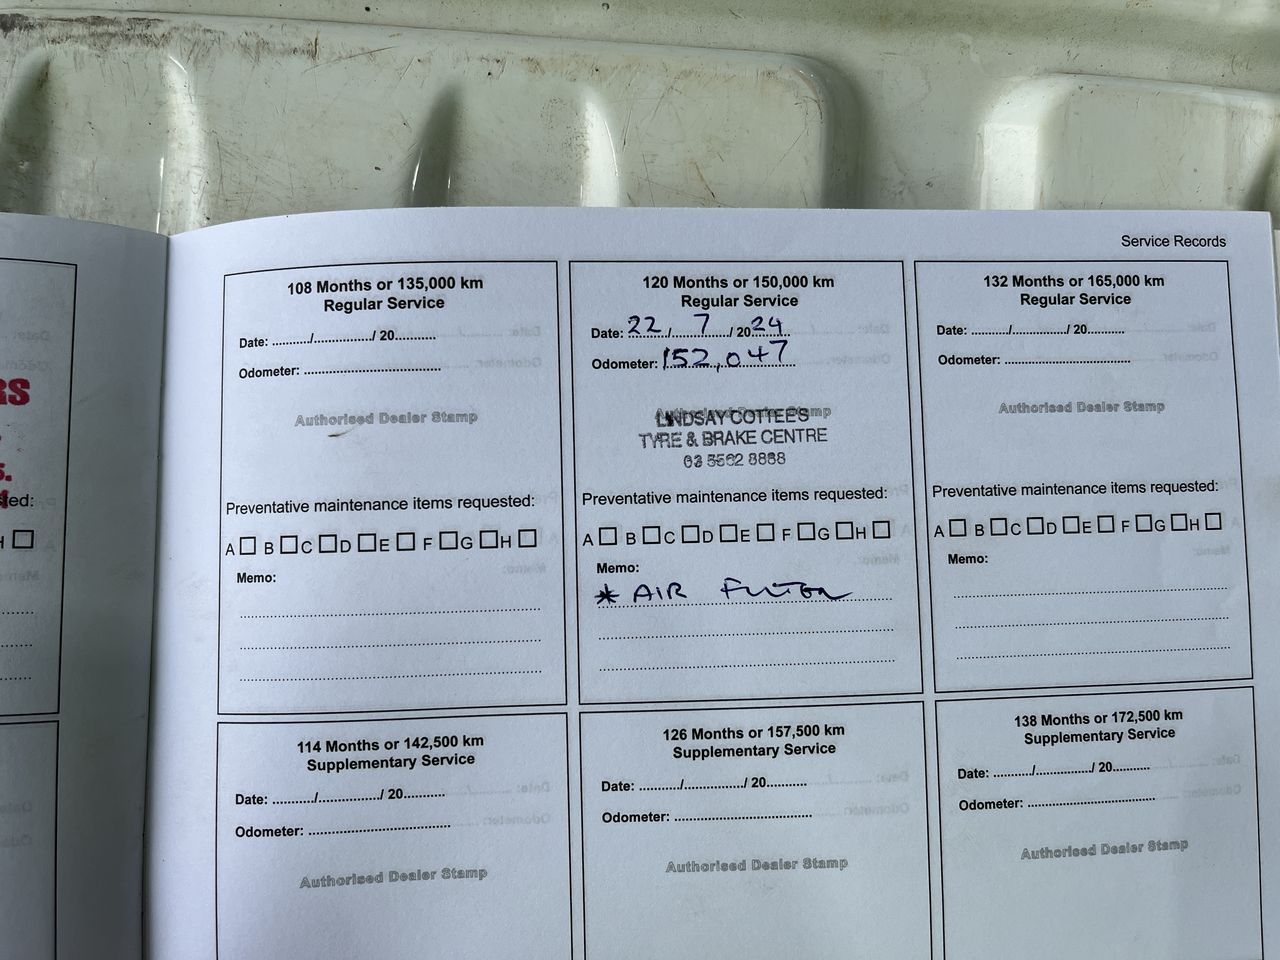 Service Records
RS
5.
ted:
H
108 Months or 135,000 km
Regular Service
Date: ........../.............../ 20..........
Odometer: ....................................
Authorised Dealer Stamp
Preventative maintenance items requested:
A B C D E F G H
Memo:
120 Months or 150,000 km
Regular Service
Date: 22 / 7 / 20 24
Odometer: 152,047
Authorised Dealer Stamp
LINDSAY COTTEES
TYRE & BRAKE CENTRE
03 5562 8888
Preventative maintenance items requested:
A B C D E F G H
Memo:
* AIR FILTER
132 Months or 165,000 km
Regular Service
Date: ........../.............../ 20..........
Odometer: ....................................
Authorised Dealer Stamp
Preventative maintenance items requested:
A B C D E F G H
Memo:
114 Months or 142,500 km
Supplementary Service
Date: ........../.............../ 20..........
Odometer: ....................................
Authorised Dealer Stamp
126 Months or 157,500 km
Supplementary Service
Date: ........../.............../ 20..........
Odometer: ....................................
Authorised Dealer Stamp
138 Months or 172,500 km
Supplementary Service
Date: ........../.............../ 20..........
Odometer: ....................................
Authorised Dealer Stamp